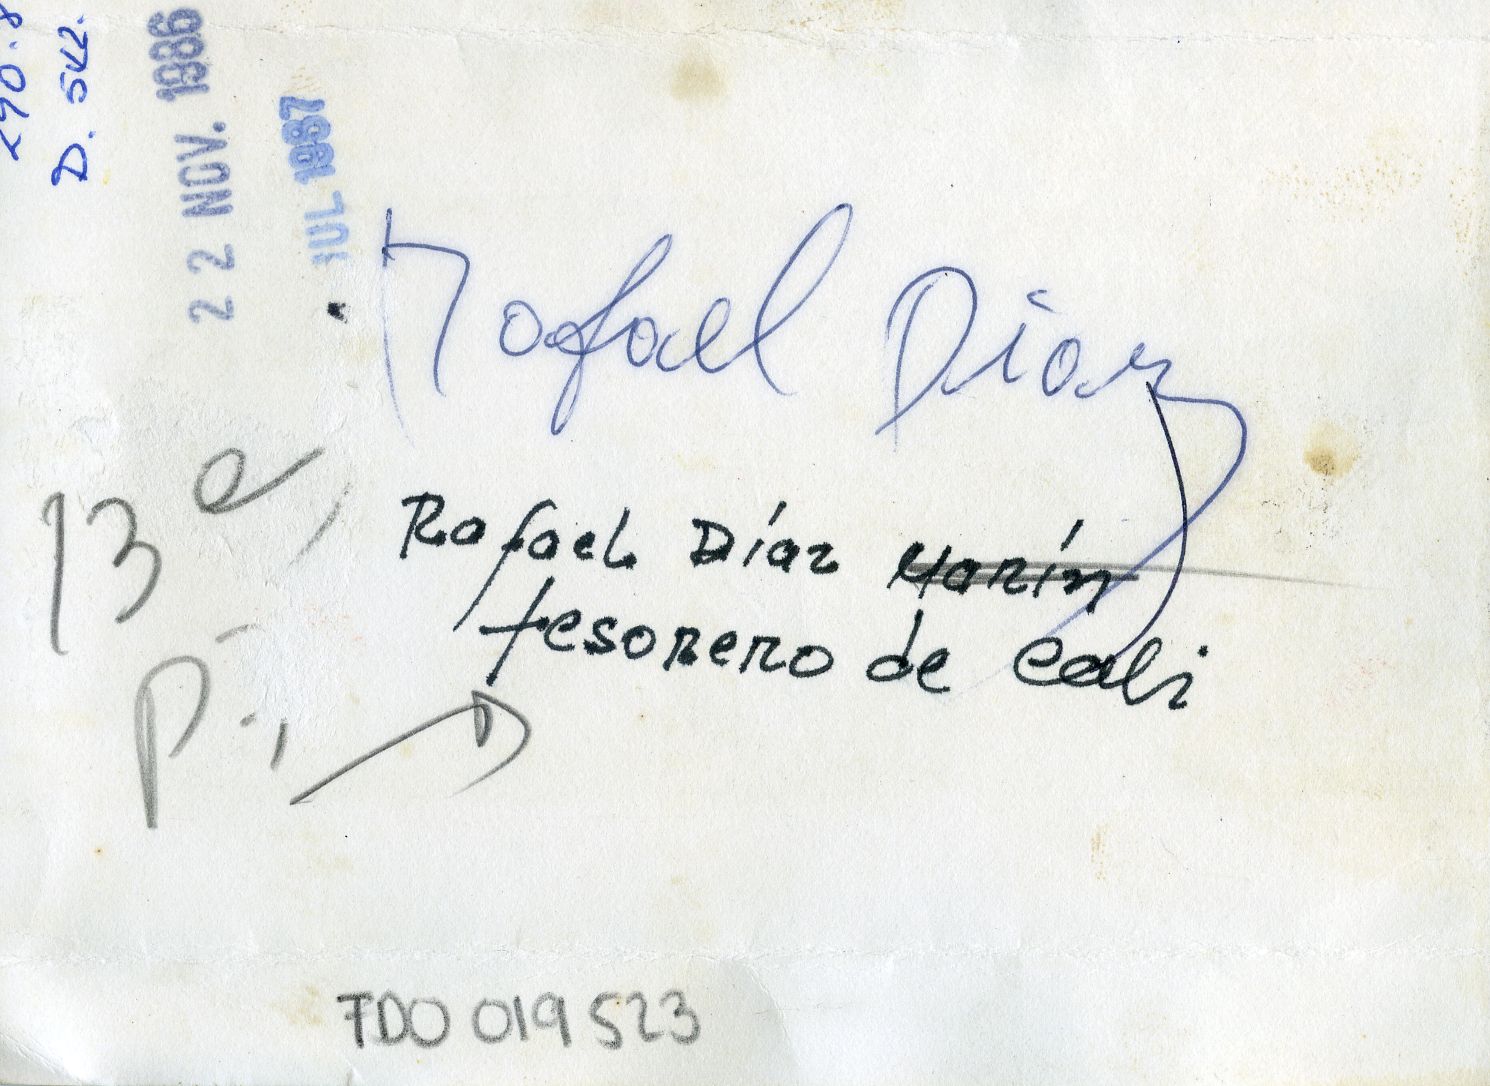 D. 542.
22 NOV. 1986
JUL 1987
Rafael Díaz
13 a,
Rafael Díaz Marín
tesorero de Cali
P.,
FDO 019523